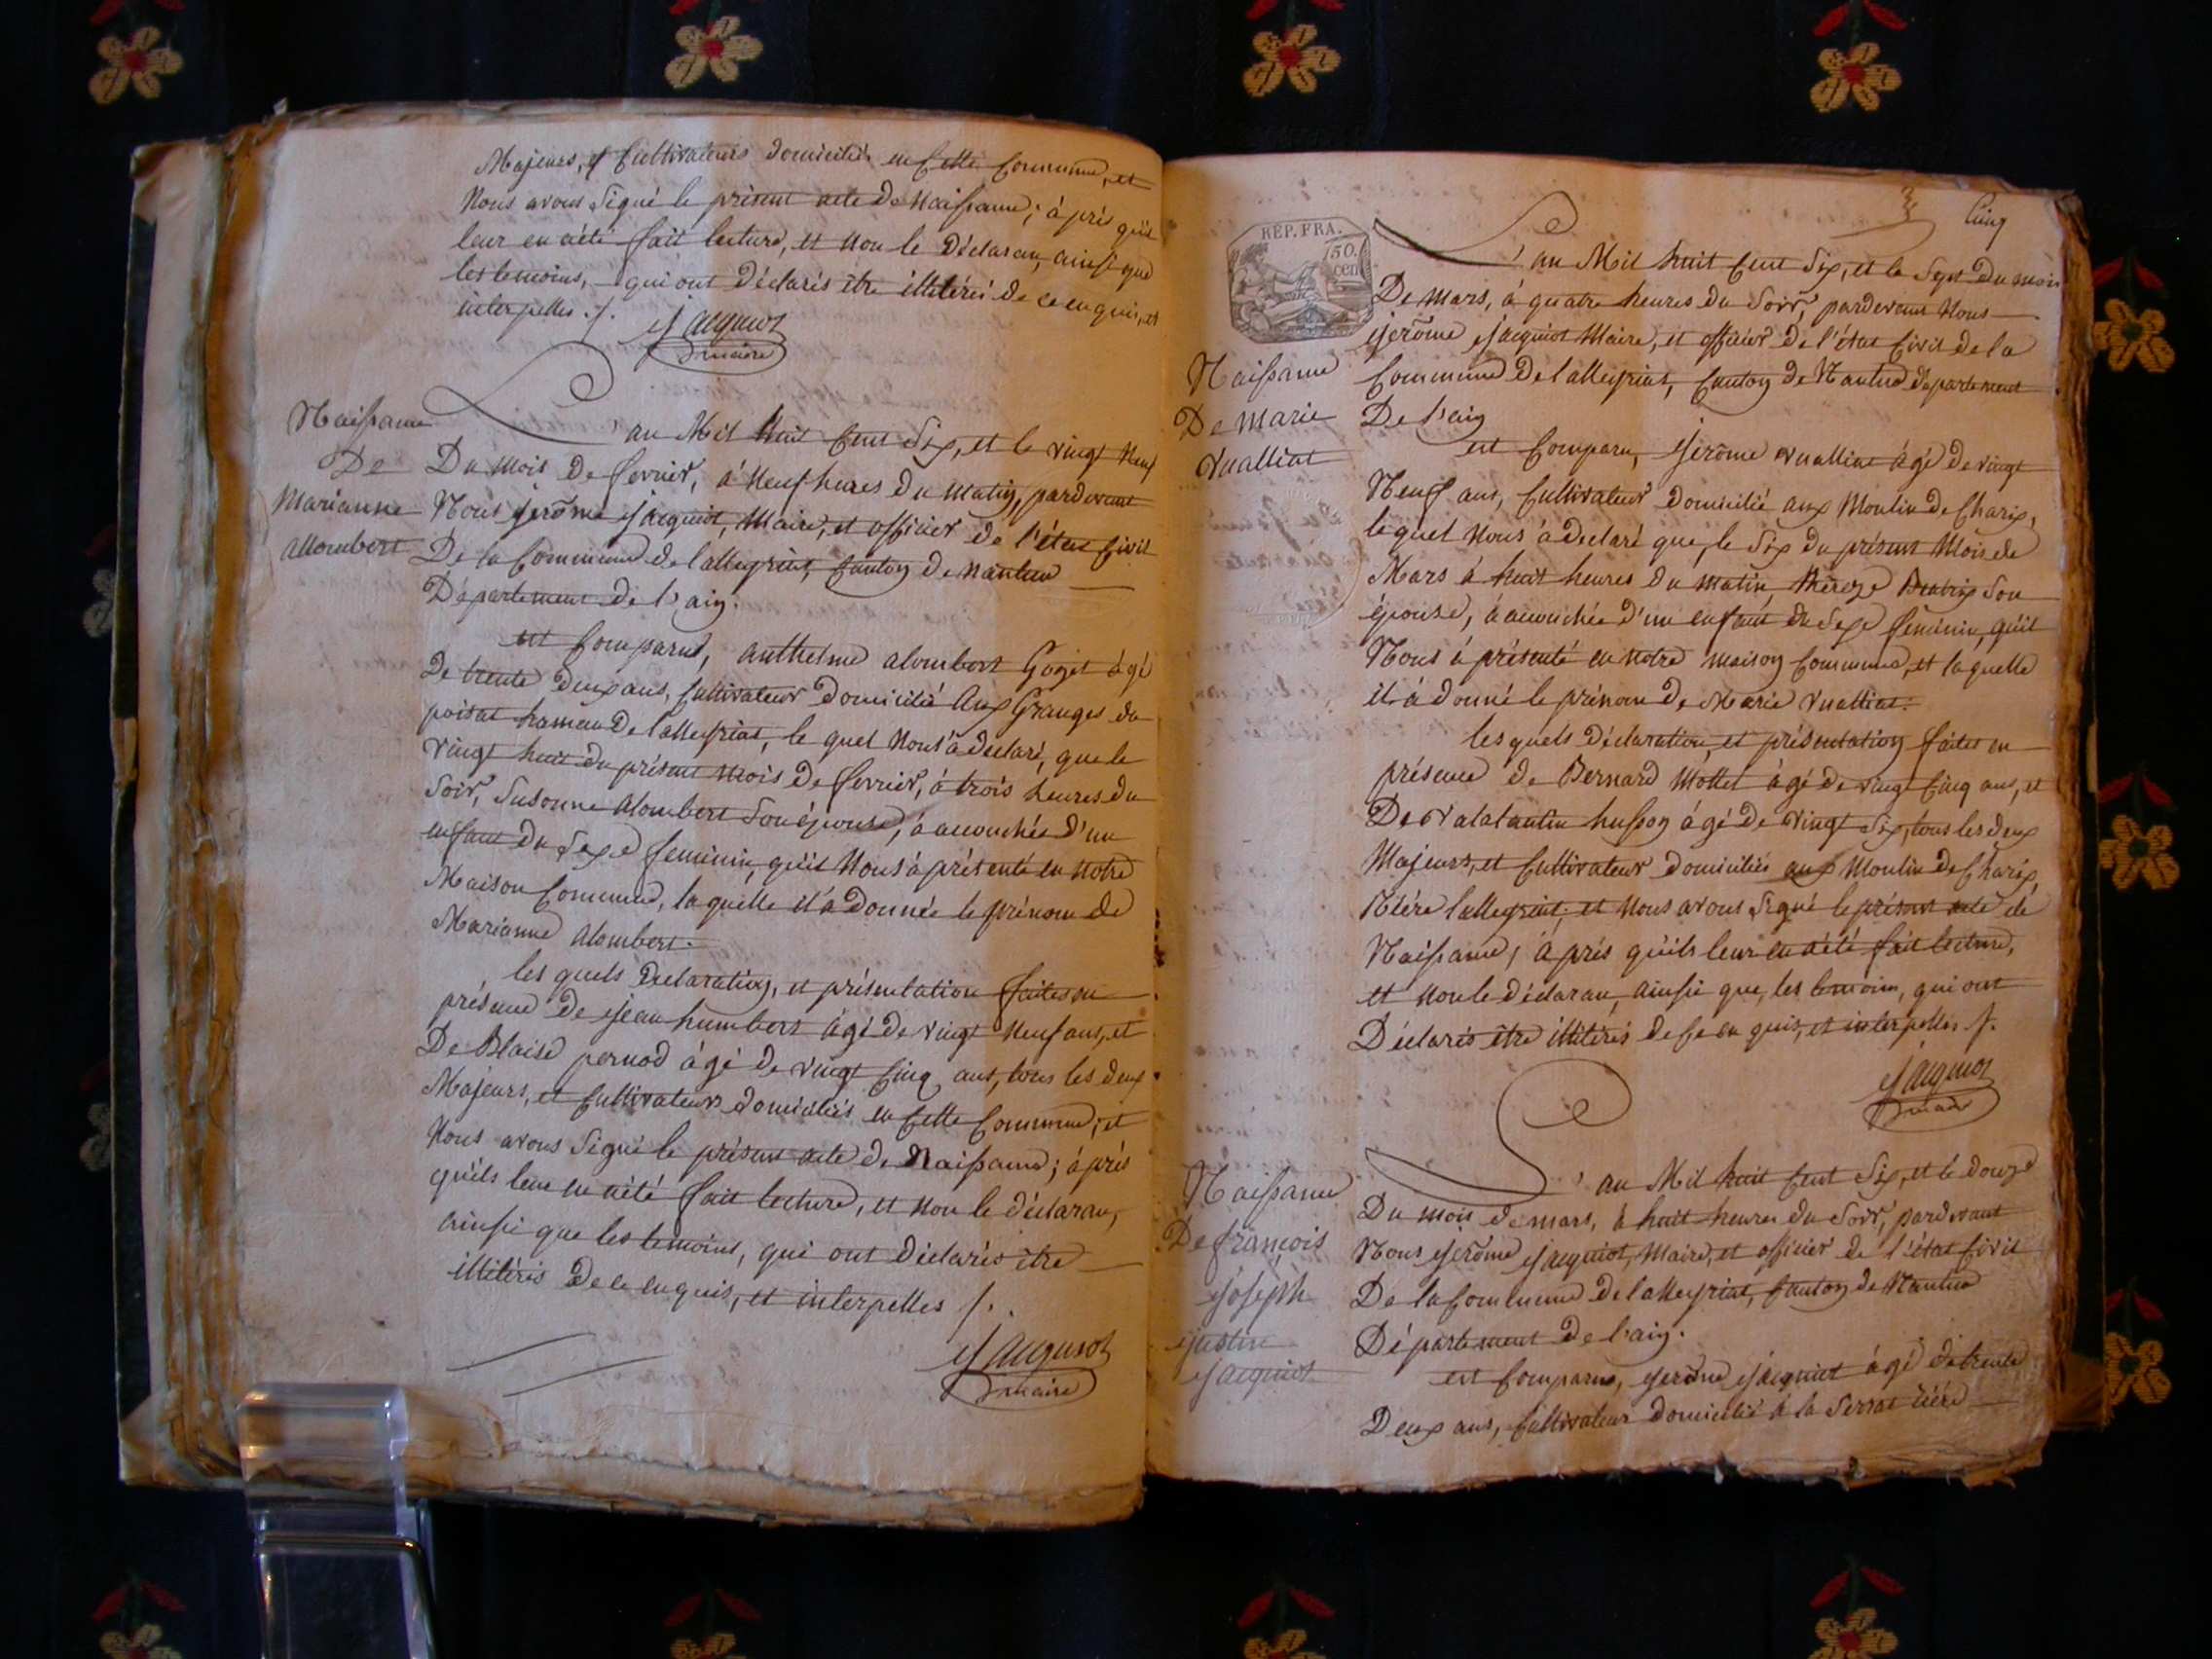 Majeurs, et Cultivateurs domiciliés en Cette Commune, et
Nous avons Signé le présent acte de Naissance; à près qu'il
leur en a été fait lecture, et Non le Déclaran, ainsi que
les temoins, qui ont Déclarés être illitérés de ce enquis, et
interpelles ./.
Jacquiot
maire
Naissance
De
Marianne
allombert
L'an Mil huit Cent Six, et le vingt Neuf
Du mois De fevrier, à Neuf heures du matin, pardevant
Nous jerôme jacquiot, Maire, et officier de l'état Civil
De la Commune de lalleyriat, Canton de Nantua
Département de l'ain.
est Comparut, anthelme alombert Gozet âgé
De trente deux ans, Cultivateur Domicilié Aux Granges du
poisat hameau De lalleyriat, le quel Nous à declaré, que le
Vingt huit du présent mois de fevrier, à trois heures du
Soir, Susonne Alombert Son épouse, à accouchée d'un
enfant du Sexe feminin, qu'il Nous à présenté en Notre
Maison Commune, la quelle il à Donnée le prénom de
Marianne Alombert.
les quels Declaration, et présentation faites en
présence De jean humbert âgé de vingt Neuf ans, et
De Blaise pernod âgé de vingt Cinq ans, tous les deux
Majeurs, et Cultivateurs domiciliés en Cette Commune; et
Nous avons Signé le présent acte de Naissance; à près
qu'ils leur en a été fait lecture, et Non le déclaran,
ainsi que les temoins, qui ont Déclarés être
illitérés De ce enquis, et interpelles /.
Jacquiot
maire
Cinq
RÉP. FRA.
50.
cen
Naissance
De Marie
Vualliat
L'an Mil huit Cent Six, et le Sept du mois
De Mars, à quatre heures du Soir, pardevant Nous
jerôme jacquiot Maire, et officier de l'état Civil de la
Commune De lalleyriat, Canton de Nantua département
De l'ain
est Comparu, jerôme Vualliat âgé de vingt
Neuf ans, Cultivateur domicilié aux Moulin de Charix,
lequel Nous à declaré que, le Six du présent Mois de
Mars à huit heures du matin, thereze Beatrix Son
épouse, à accouchée d'un enfant du Sexe feminin, qu'il
Nous à présenté en Notre maison Commune, et laquelle
il à donné le prénom de Marie Vualliat.
les quels déclaration, et présentation faites en
présence de Bernard Mollet âgé de vingt Cinq ans, et
De Valalantin husson âgé de Vingt Six, tous les deux
Majeurs, et Cultivateur domiciliés aux Moulin de Charix,
Riére lalleyriat; et Nous avons Signé le présent acte de
Naissance; à près qu'ils leur en a été fait lecture,
et Non le déclaran, ainsi que, les temoins, qui ont
Déclarés être illitérés de Ce en quis, et interpelles /.
Jacquiot
maire
Naissance
De françois
joseph
justin
jacquiot
L'an Mil huit Cent Six, et le douze
Du mois de mars, à huit heures du Soir, pardevant
Nous jerôme jacquiot, Maire, et officier de l'état Civil
De la Commune De lalleyriat, Canton de Nantua
Département De l'ain.
est Comparu, jerôme jacquiot âgé de trente
Deux ans, Cultivateur domicilié à la Serrat riére